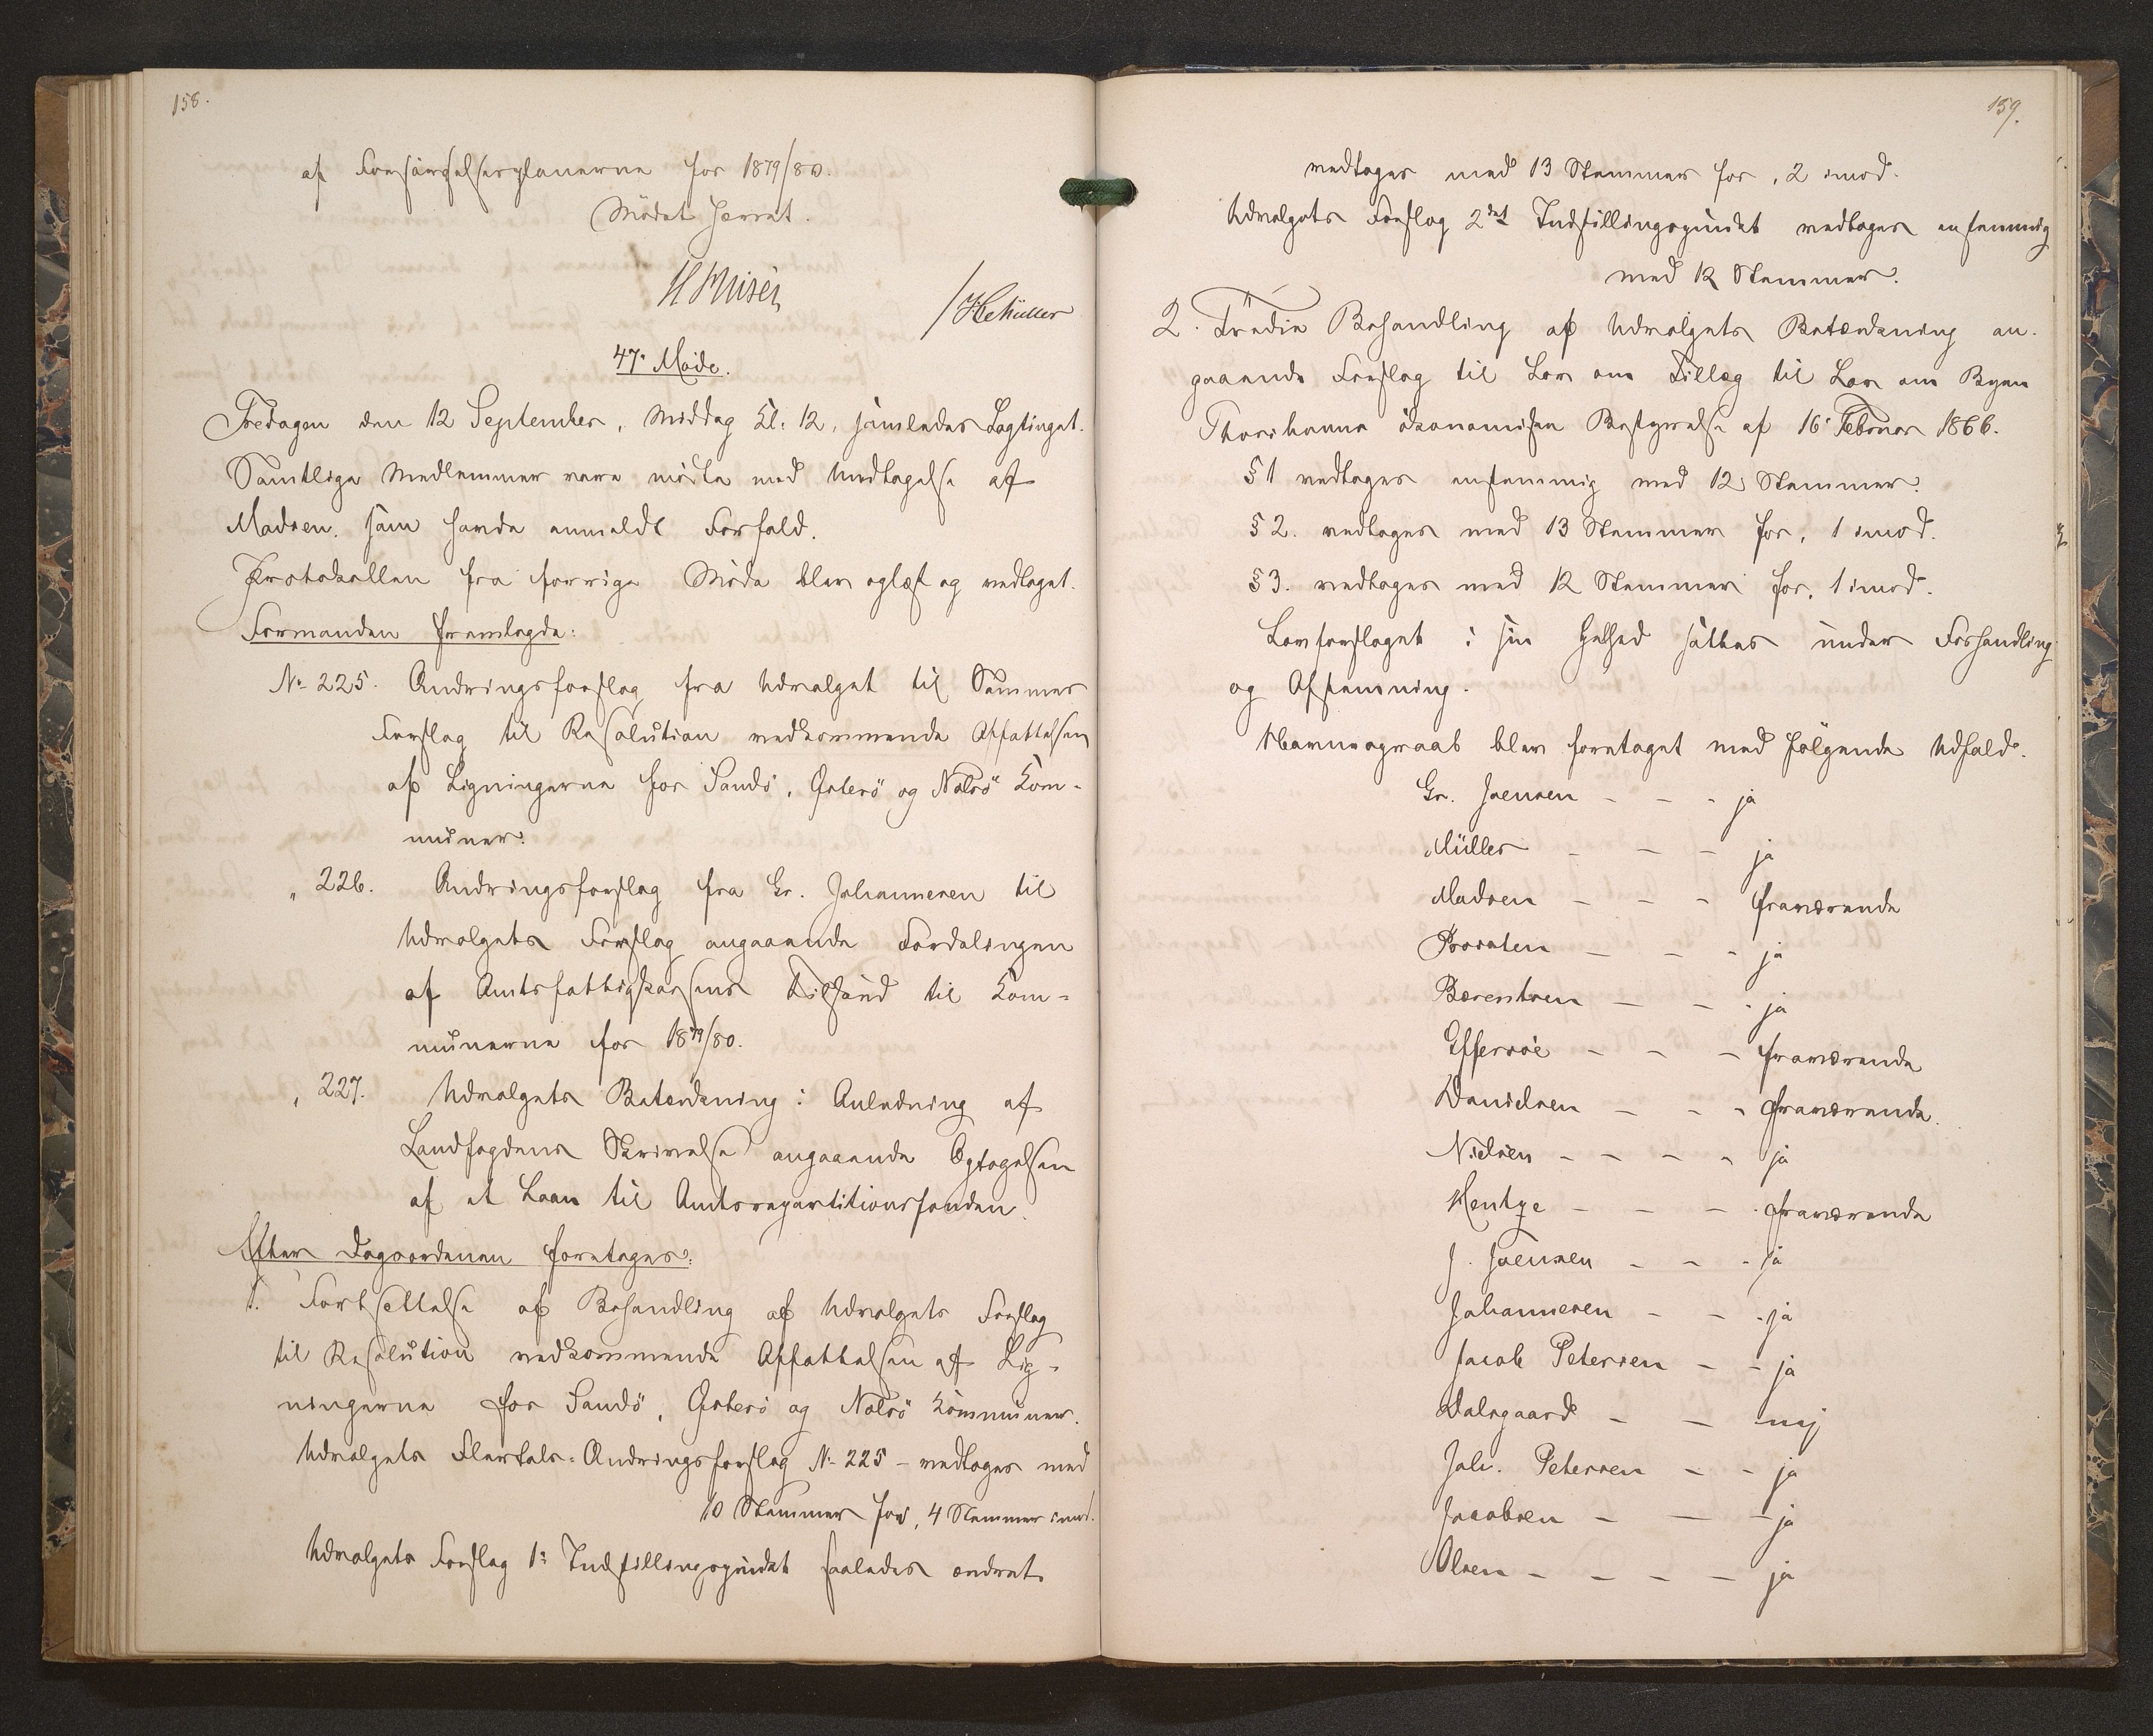 158.
af Forsørgelsesplanerne for 1879/80.
Mødet hævet.
/HCMüller
47de Møde.
Fredagen den 12 September, Middag Kl. 12, samledes Lagtinget.
Samtlige Medlemmer vare mødte med Undtagelse af
Madsen, som havde anmeldt Forfald.
Protokollen fra forrige Møde blev oplæst og vedtaget.
Formanden fremlagde:
No 225. Ændringsforslag fra Udvalget til Sammes
Forslag til Resolution vedkommende Affattelsen
af Ligningerne for Sandö, Österö og Nolsö Kom-
muner.
" 226. Ændringsforslag fra Gr. Johannesen til
Udvalgets Forslag angaaende Fordelingen
af Amtsfattigkassens Tilskud til Kom-
munerne for 1879/80.
" 227. Udvalgets Betænkning i Anledning af
Landfogdens Skrivelse angaaende Optagelsen
af et Laan til Amtsrepartitionsfonden.
Efter Dagsordenen foretoges:
1. Fortsættelse af Behandling af Udvalgets Forslag
til Resolution vedkommende Affattelsen af Lig-
ningerne for Sandö, Österö og Nolsö Kommuner.
Udvalgets Flertals-Ændringsforslag No 225 - vedtoges med
10 Stemmer for, 4 Stemmer imod.
Udvalgets Forslag 1ste Indstillingspunkt saaledes ændret
159.
vedtoges med 13 Stemmer for, 2 imod.
Udvalgets Forslag 2det Indstillingspunkt vedtoges enstemmig
med 12 Stemmer.
2. Tredie Behandling af Udvalgets Betænkning an-
gaaende Forslag til Lov om Tillæg til Lov om Byen
Thorshavns ökonomiske Bestyrelse af 16de Februar 1866.
§ 1 vedtoges enstemmig med 12 Stemmer.
§ 2. vedtoges med 13 Stemmer for, 1 imod.
§ 3. vedtoges med 12 Stemmer for, 1 imod.
Lovforslaget i sin Helhed sattes under Forhandling
og Afstemning.
Navneopraab blev foretaget med følgende Udfald.
Gr. Joensen - - - ja
Müller - - - ja
Madsen - - - fraværende
Brosten - - - ja
Bærentsen - - - ja
Effersøe - - - fraværende
Danielsen - - - fraværende.
Nielsen - - - - ja
Hentze - - - fraværende
J. Joensen - - - ja
Johannesen - - - ja
Jacob Petersen - - ja
Dalsgaard - - nej
Joh. Petersen - - ja
Jacobsen - - - ja
Olsen - - - - ja